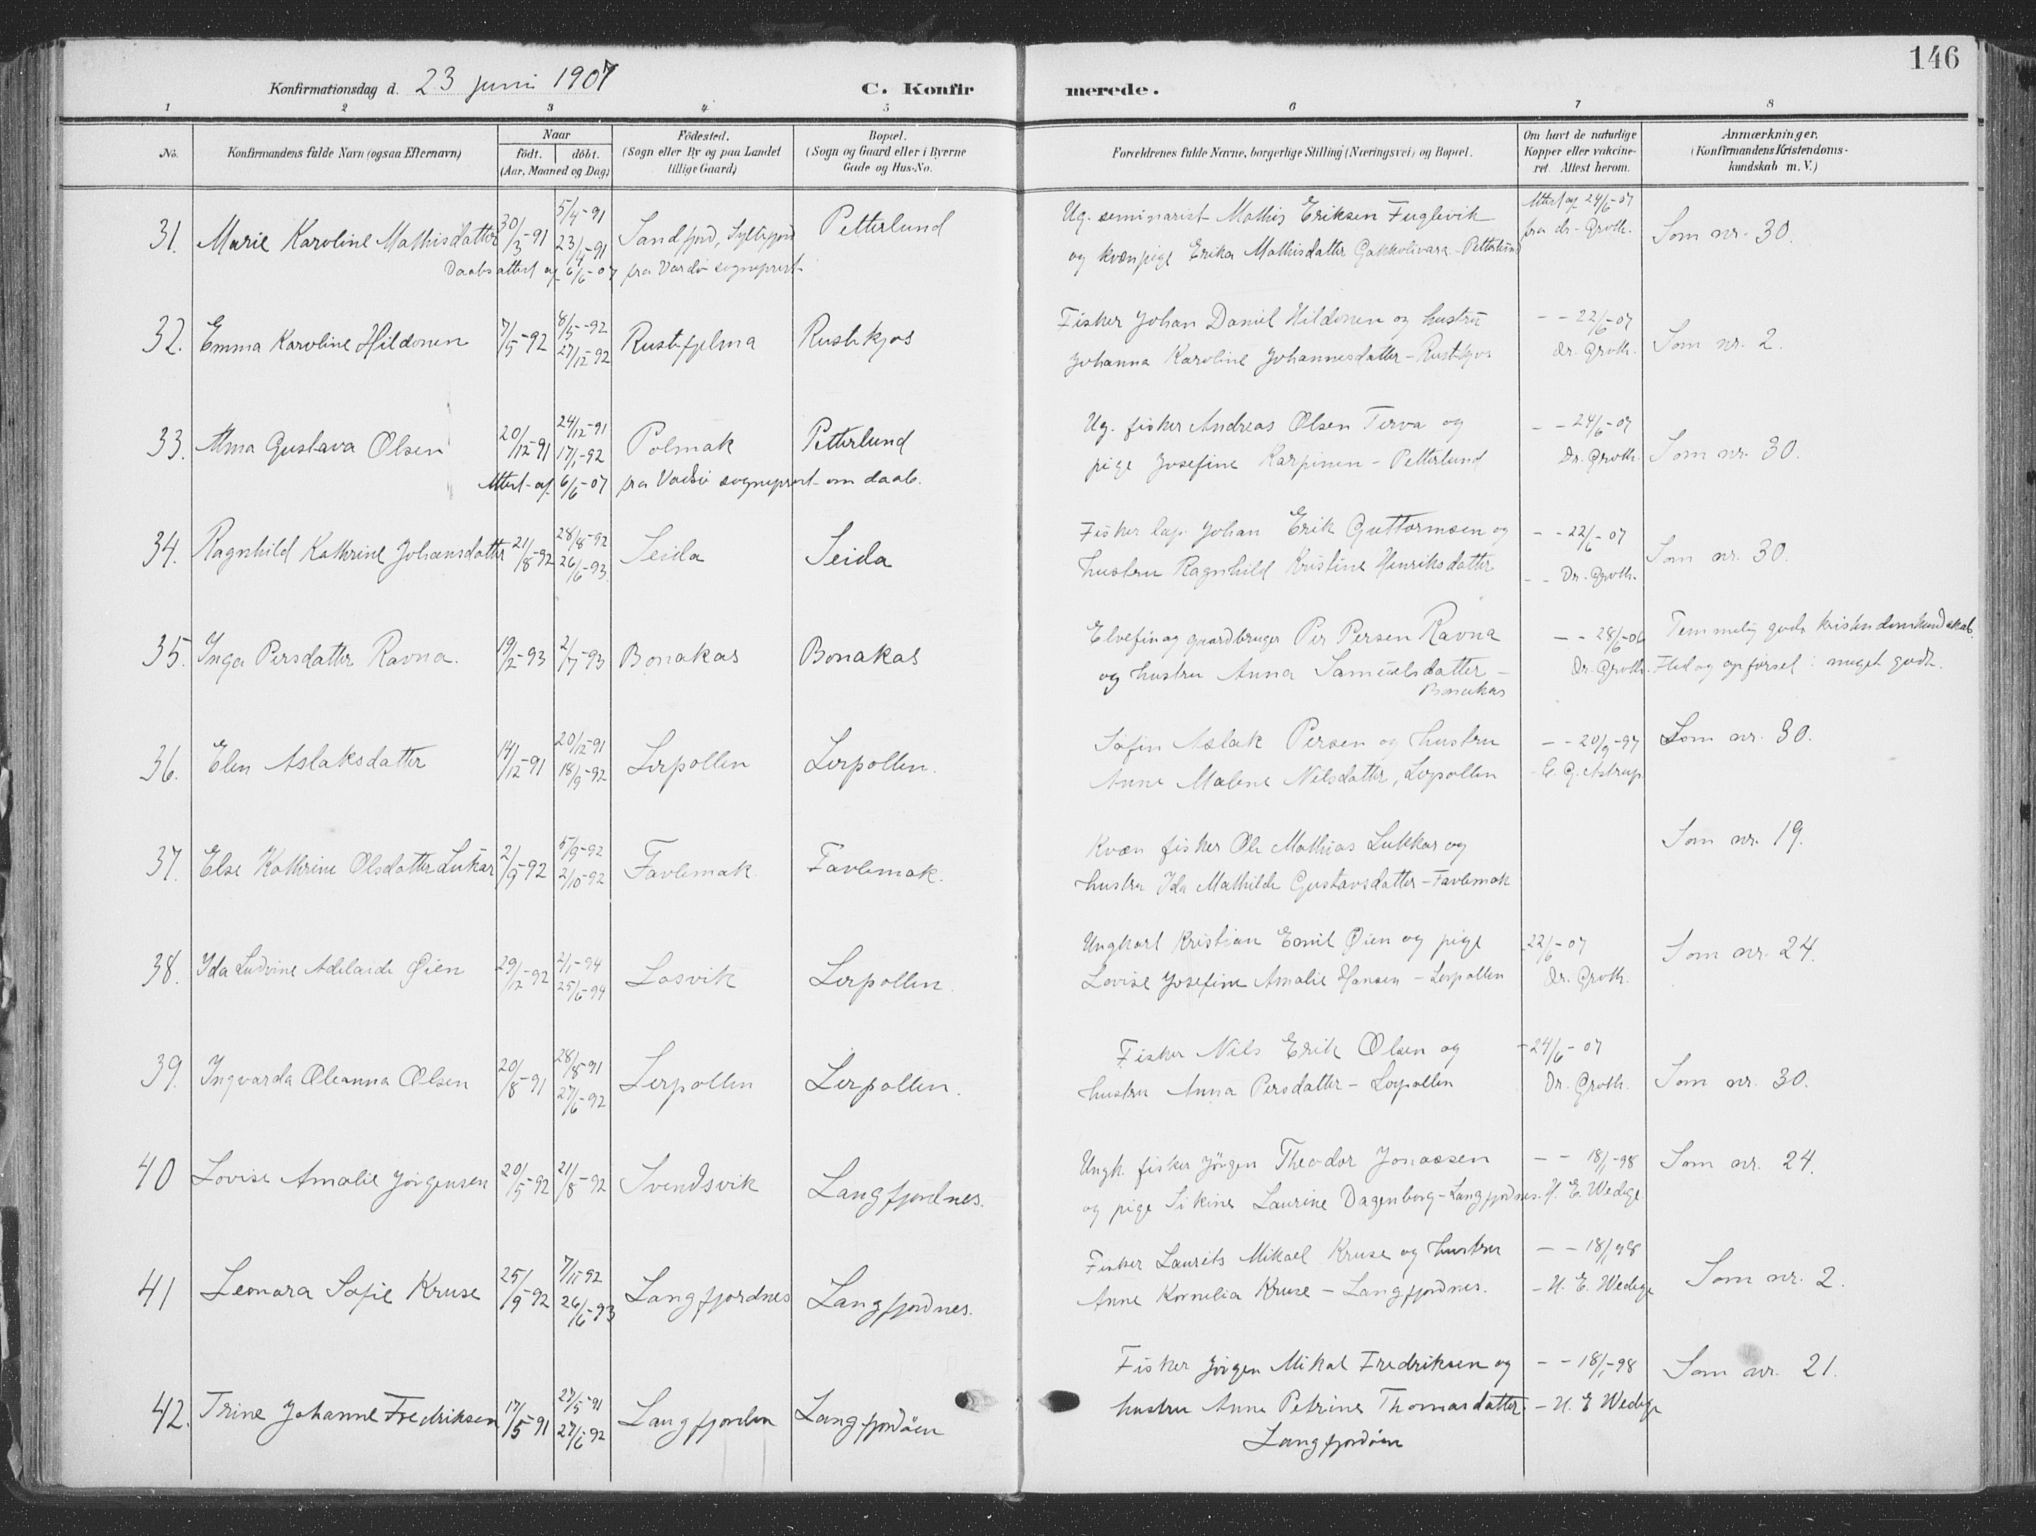 146
Konfirmationsdag d. 23 juni 1907
C. Konfirmerede.
1 2 3 4 5 6 7 8
No.
Konfirmandens fulde Navn (ogsaa Efternavn)
Naar
födt. döbt.
(Aar, Maaned og Dag)
Födested.
(Sogn eller By og paa Landet
tillige Gaard)
Bopæl.
(Sogn og Gaard eller i Byerne
Gade og Hus-No.
Forældrenes fulde Navne, borgerlige Stilling (Næringsvei) og Bopæl.
Om havt de naturlige
Kopper eller vakcine-
ret. Attest herom.
Anmærkninger.
(Konfirmandens Kristendoms-
kundskab m. V.)
31. Marie Karoline Mathisdatter 30/3-91 5/4-91 23/4-91 Sandfjord, Syltefjord Petterlund
Daabsattest af 6/6-07 fra Vardö sogneprest
Ug. seminarist Mathis Eriksen Fuglevik
og kvænpige Erika Mathisdatter Gakkolivara - Petterlund
Attest af 24/6-07
fra dr. Groth.
Som nr. 30.
32. Emma Karoline Hildonen 7/5-92 8/5-92 27/12-92 Rustefjelma Rustikjos
Fisker Johan Daniel Hildonen og hustru
Johanna Karoline Johannesdatter - Rustikjos
- - 22/6-07
dr. Groth.
Som nr. 2.
33. Alma Gustava Olsen 20/12-91 24/12-91 17/1-92 Polmak Petterlund
Attest af 6/6-07 fra Vadsö sogneprest om daab.
Ug. fisker Andreas Olsen Terva og
pige Josefine Karpinen - Petterlund
- - 24/6-07
Dr. Groth.
Som nr. 30.
34. Ragnhild Kathrine Johansdatter 21/8-92 28/8-92 26/6-93. Seida Seida
Fisker lap. Johan Erik Guttormsen og
hustru Ragnhild Kristine Henriksdatter
- - 22/6-07
- - Dr. Groth.
Som nr. 30.
35. Inga Persdatter Ravna. 19/2-93 2/7-93 Bonakas Bonakas
Elvefin og gaardbruger Per Persen Ravna
og hustru Anna Samuelsdatter -
Bonakas
- - 28/6-06
Dr. Groth.
Temmelig god kristendomskundskab.
Flid og opførsel: meget godt.
36. Elen Aslaksdatter 14/12-91 20/12-91 18/9-92 Lerpollen Lerpollen.
Søfin Aslak Persen og hustru
Anne Malene Nilsdatter, Lerpollen
- - 20/9-97
- E. G. Astrup
Som nr. 30.
37. Else Kathrine Olsdatter Lukar 2/9-92 5/9-92 2/10-92 Favlemak. Favlemak.
Kvæn fisker Ole Mathias Lukkar og
hustru Ida Mathilde Gustavsdatter - Favlemak
Som nr. 19.
38. Ida Ludvine Adelaide Øien 29/12-92 2/1-94 25/6-94 Losvik Lerpollen.
Ungkarl Kristian Emil Øien og pige
Lovise Josefine Amalie Hansen - Lerpollen
22/6-07
Dr. Groth.
Som nr. 24.
39. Ingvarda Oleanna Olsen 20/8-91 28/8-91 27/6-92 Lerpollen Lerpollen.
Fisker Nils Erik Olsen og
hustru Anna Persdatter - Lerpollen
- 24/6-07
Dr. Groth.
Som nr. 30.
40 Lovise Amalie Jörgensen 20/5-92 21/8-92 Svendsvik Langfjordnes.
Ungk. fisker Jörgen Theodor Jonassen
og pige Sikine Laurine Dagenborg - Langfjordnes.
- - 18/1-98
H. E. Wedege
Som nr. 24.
41 Leonora Sofie Kruse 25/9-92 7/11-92 26/6-93 Langfjordnes Langfjordnes.
Fisker Laurits Mikael Kruse og hustru
Anne Kornelia Kruse - Langfjordnes.
- - 18/1-98
- H. E. Wedege
Som nr. 2.
42. Trine Johanne Fredriksen 17/5-91 27/5-91 27/6-92 Langfjorden Langfjordöen
Fisker Jörgen Mikal Fredriksen og
hustru Anne Petrine Thomasdatter
Langfjordöen
- - 18/1-98
- H. E Wedege
Som nr. 21.